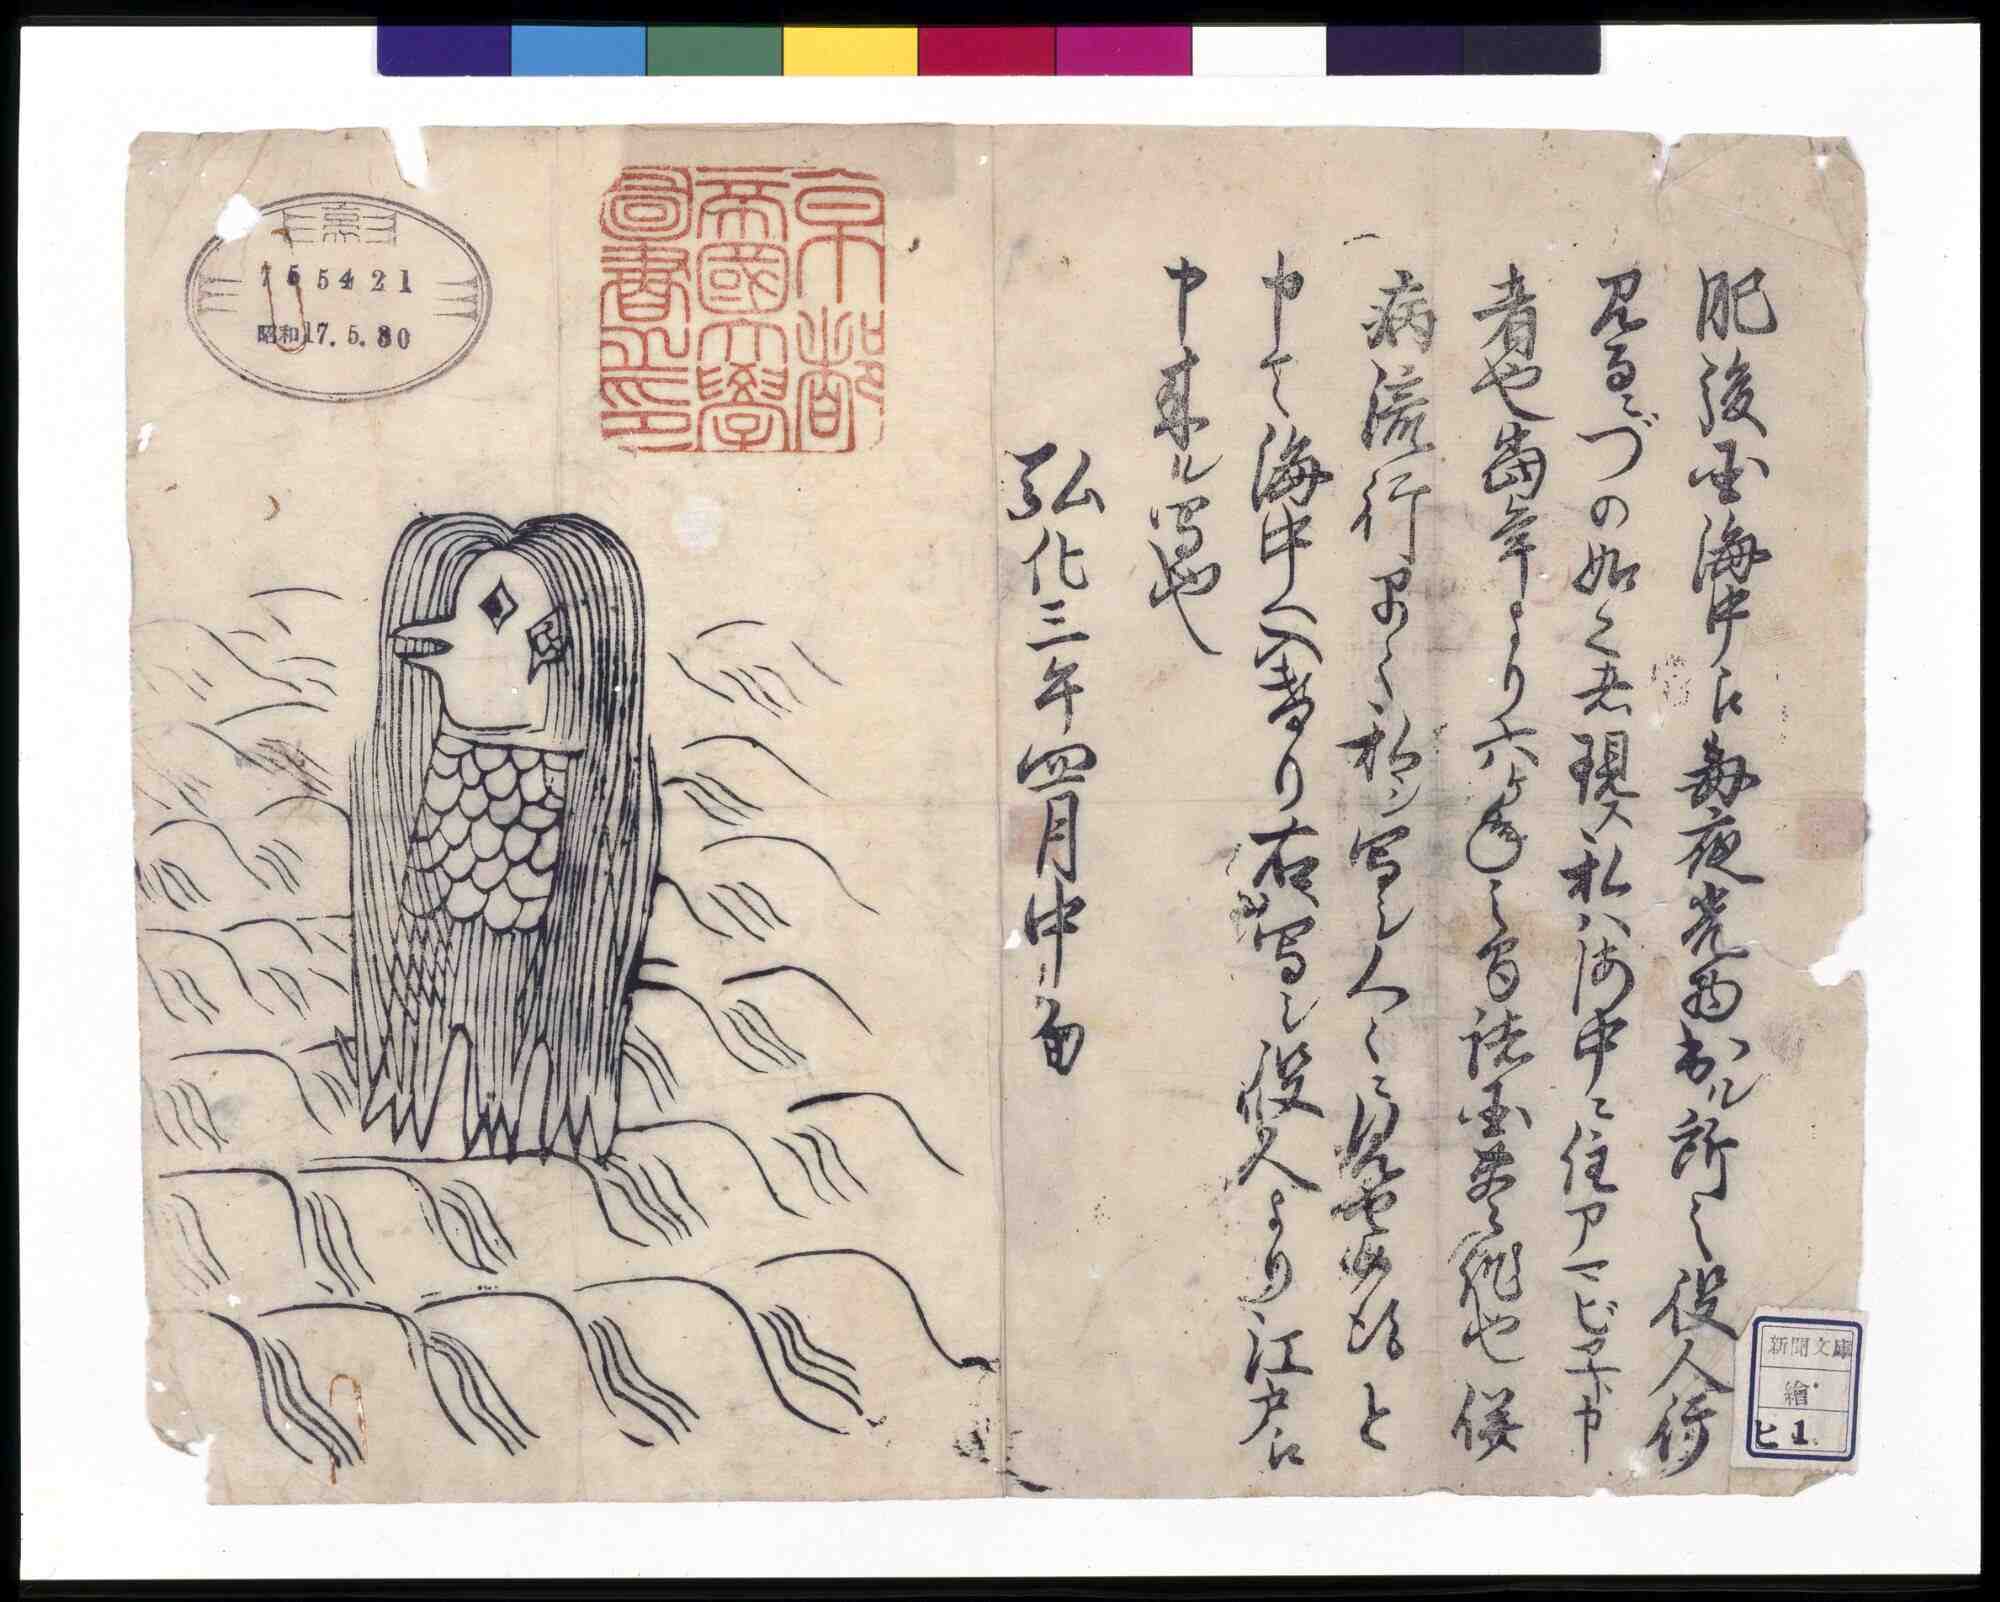 肥後国海中江毎夜光物出ル所之役人行
見るニづの如く者現ス私ハ海中ニ住アマビヱト申
者也當年より六ヶ年之間諸国豊作也併
病流行早々私シ写シ人々ニ見せ候得と
申て海中へ入けり右写シ役人より江戸江
申来ル写也
弘化三年四月中旬
京都
帝國大學
圖書之印
755421
昭和17.5.30
新聞文庫
繪
ヒ 1